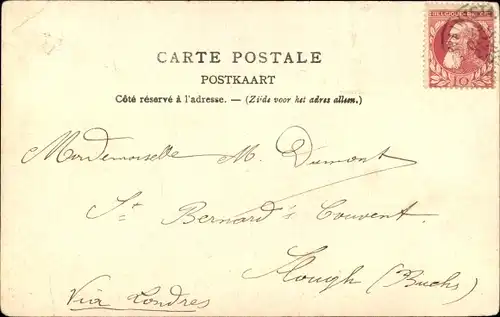 CARTE POSTALE
POSTKAART
Côté réservé à l'adresse. — (Zijde voor het adres alleen.)
BELGIQUE
10
Mademoiselle M. Dumont
St Bernard's Convent.
Slough (Bucks)
Via Londres